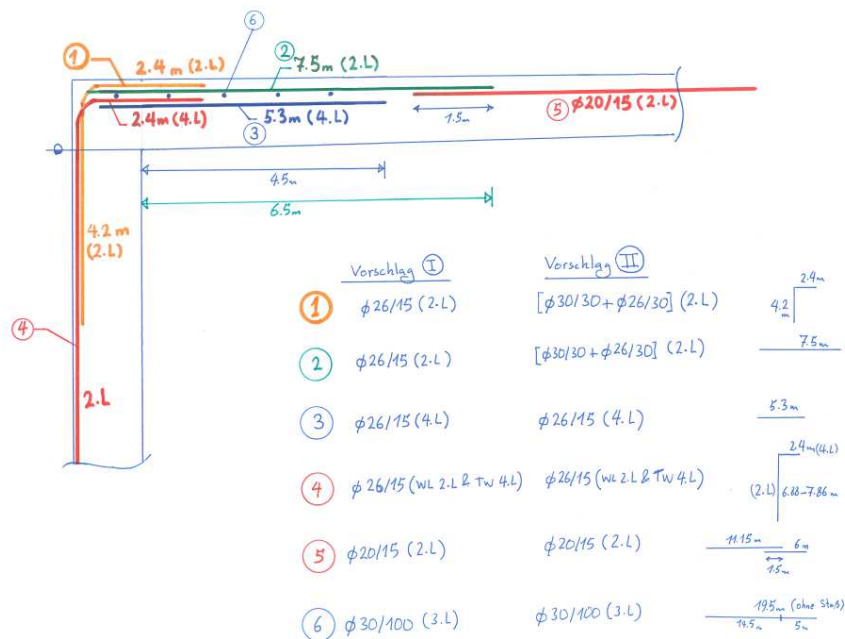 ⑥
① 2.4 m (2.L)
② 7.5m (2.L)
2.4m (4.L)
③ 5.3m (4.L)
⑤ ϕ20/15 (2.L)
1.5m
4.5m
6.5m
4.2 m
(2.L)
④
2.L
Vorschlag Ⅰ Vorschlag Ⅱ
① ϕ26/15 (2.L) [ϕ30/30 + ϕ26/30] (2.L) 4.2 m 2.4m
② ϕ26/15 (2.L) [ϕ30/30 + ϕ26/30] (2.L) 7.5m
③ ϕ26/15 (4.L) ϕ26/15 (4.L) 5.3m
④ ϕ26/15 (WL 2.L & TW 4.L) ϕ26/15 (WL 2.L & TW 4.L) 2.4m (4.L) (2.L) 6.88-7.86 m
⑤ ϕ20/15 (2.L) ϕ20/15 (2.L) 11.15m 6m 1.5m
⑥ ϕ30/100 (3.L) ϕ30/100 (3.L) 19.5m (ohne Stoß) 14.5m 5m